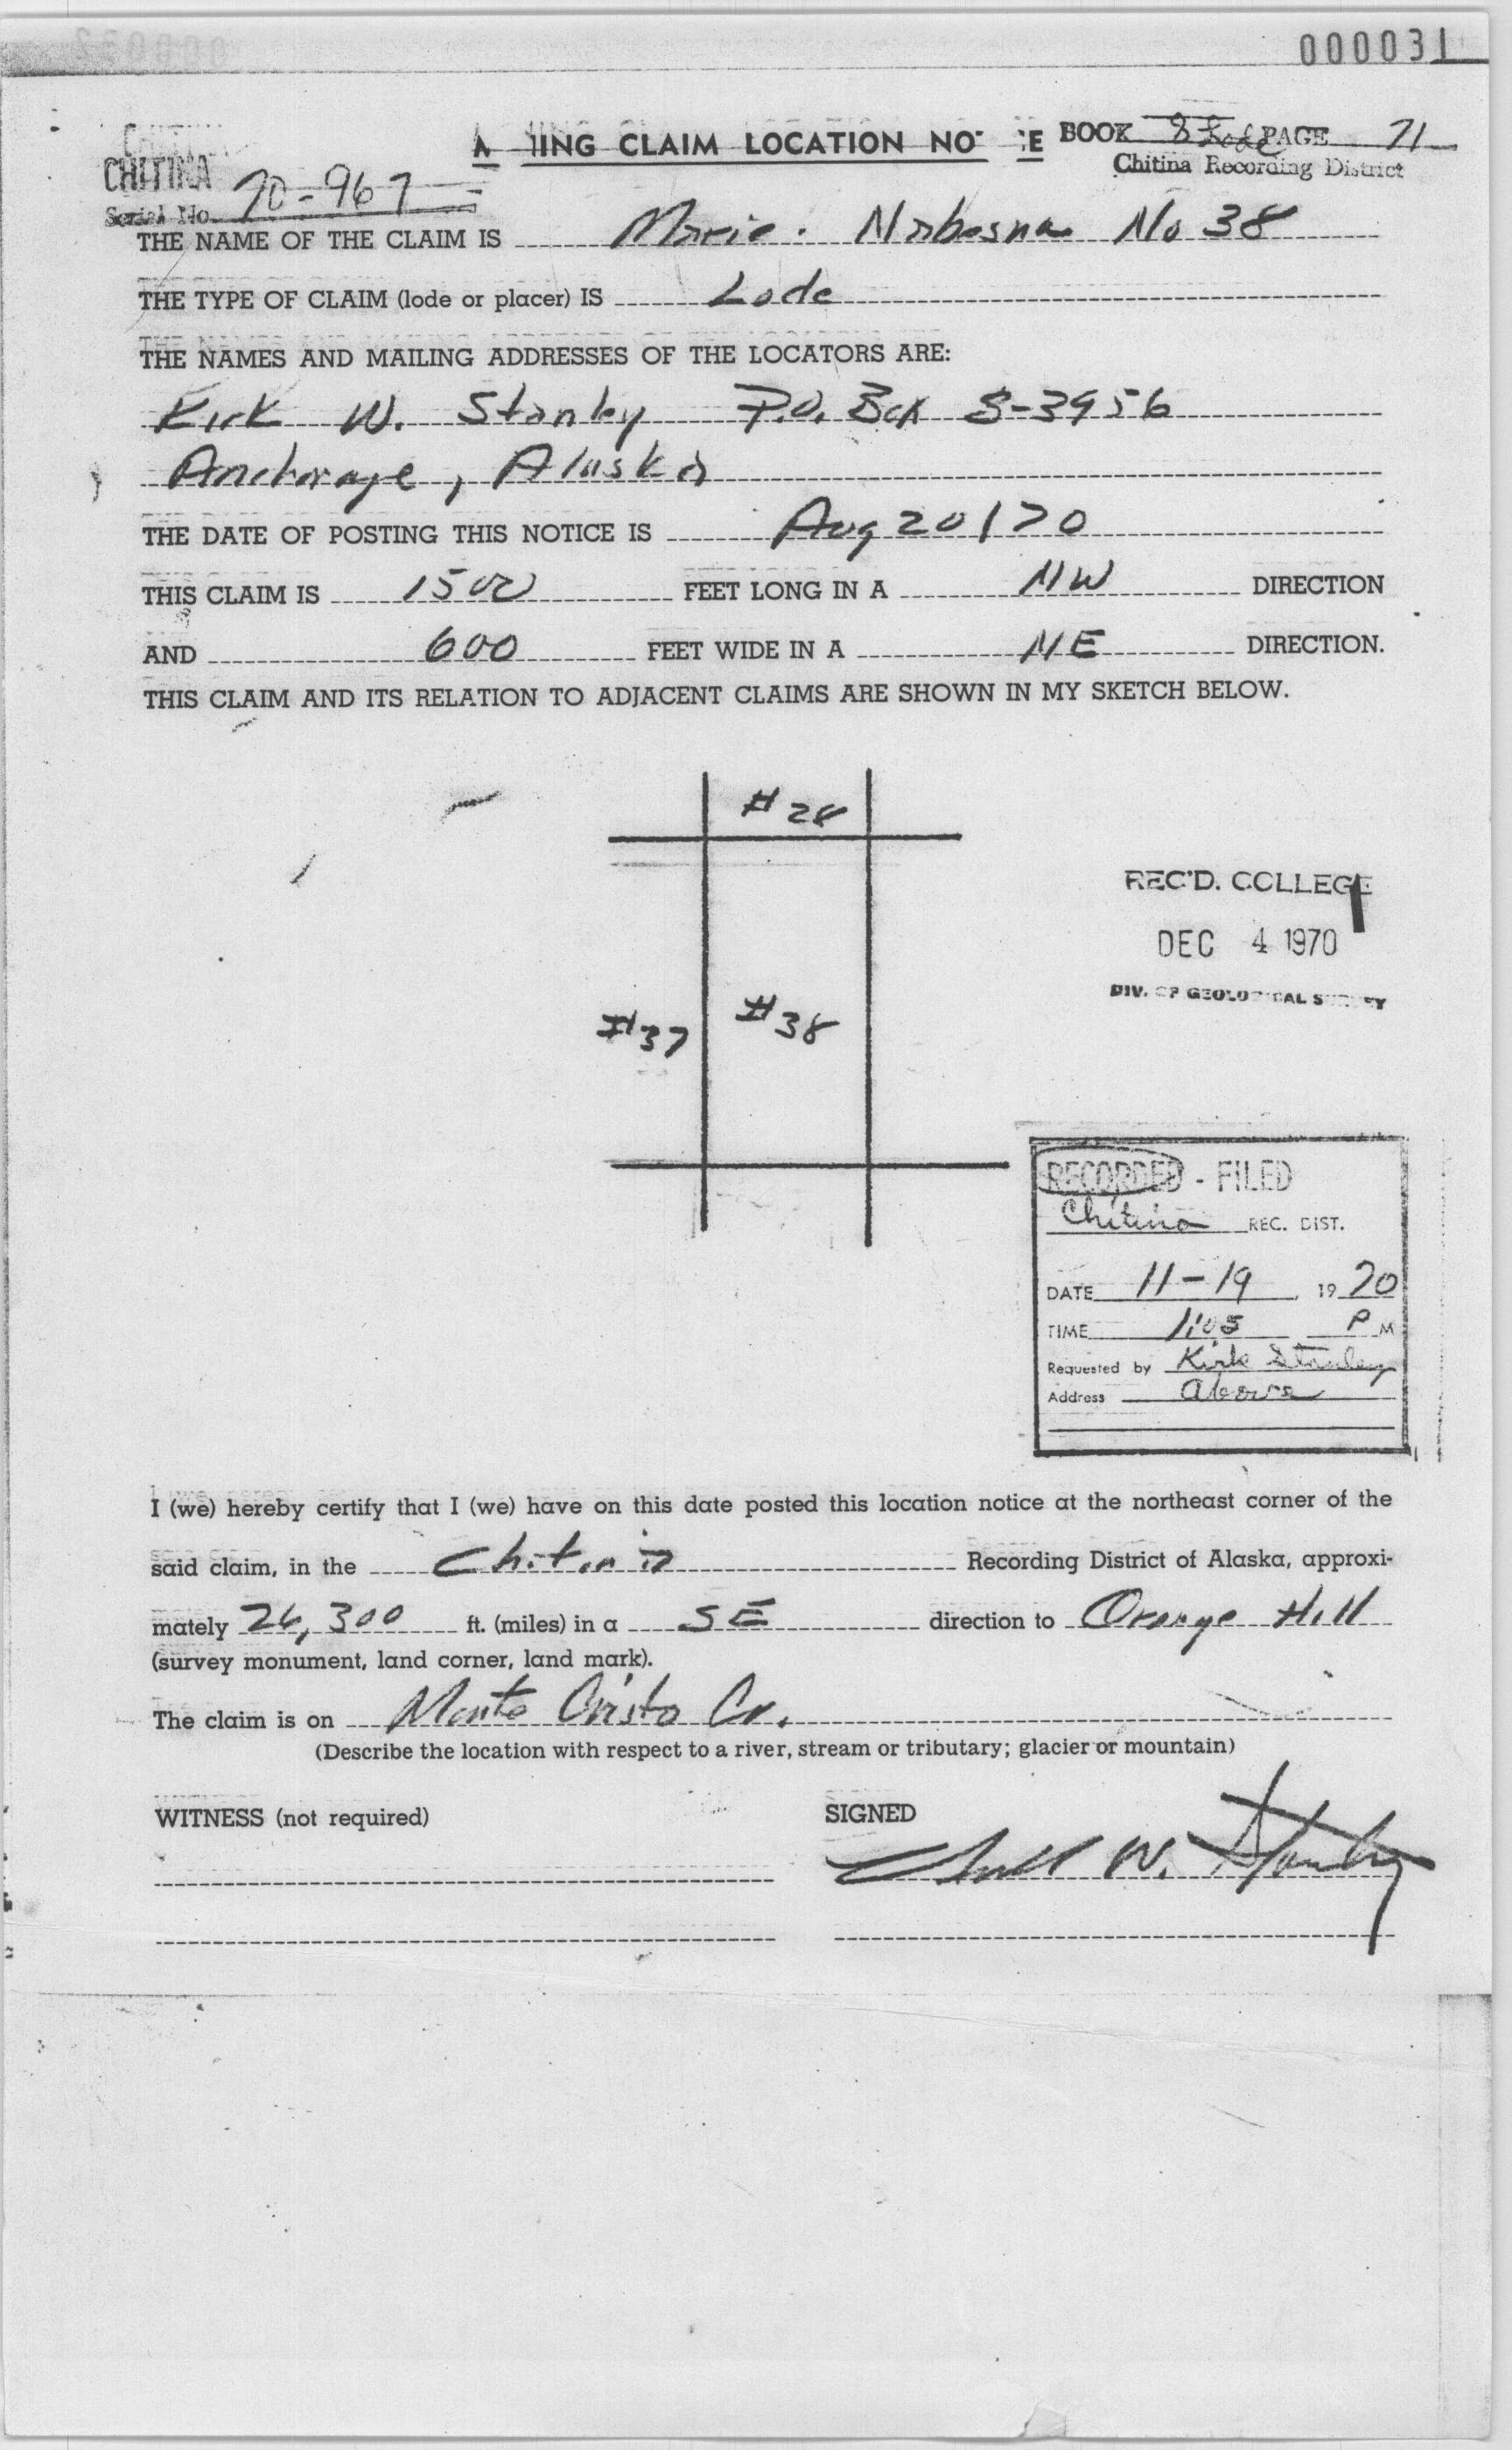 000031
MINING CLAIM LOCATION NOTICE BOOK 8 Lode PAGE 71
Chitina Recording District
CHITINA
Serial No. 70-967
THE NAME OF THE CLAIM IS Marie. Nabesna No 38
THE TYPE OF CLAIM (lode or placer) IS Lode
THE NAMES AND MAILING ADDRESSES OF THE LOCATORS ARE:
Kirk W. Stanley P.O. Box 8-3956
Anchorage, Alaska
THE DATE OF POSTING THIS NOTICE IS Aug 20/70
THIS CLAIM IS 1500 FEET LONG IN A NW DIRECTION
AND 600 FEET WIDE IN A NE DIRECTION.
THIS CLAIM AND ITS RELATION TO ADJACENT CLAIMS ARE SHOWN IN MY SKETCH BELOW.
#28
REC'D. COLLEGE
DEC 4 1970
DIV. OF GEOLOGICAL SURVEY
#37 #38
RECORDED - FILED
Chitina REC. DIST.
DATE 11-19, 1970
TIME 1:05 P M
Requested by Kirk Stanley
Address Above
I (we) hereby certify that I (we) have on this date posted this location notice at the northeast corner of the
said claim, in the Chitina Recording District of Alaska, approxi-
mately 26,300 ft. (miles) in a SE direction to Orange Hill
(survey monument, land corner, land mark).
The claim is on Monte Cristo Cr.
(Describe the location with respect to a river, stream or tributary; glacier or mountain)
WITNESS (not required) SIGNED
W. Stanley